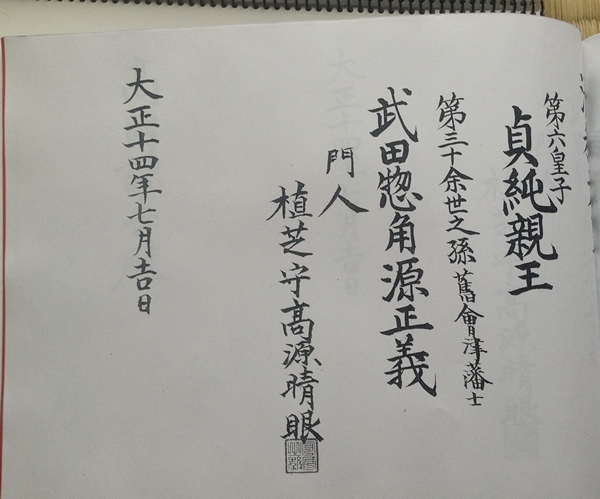 第六皇子
貞純親王
第三十余世之孫舊會津藩士
武田惣角源正義
門人
植芝守高源晴眼
大正十四年七月吉日